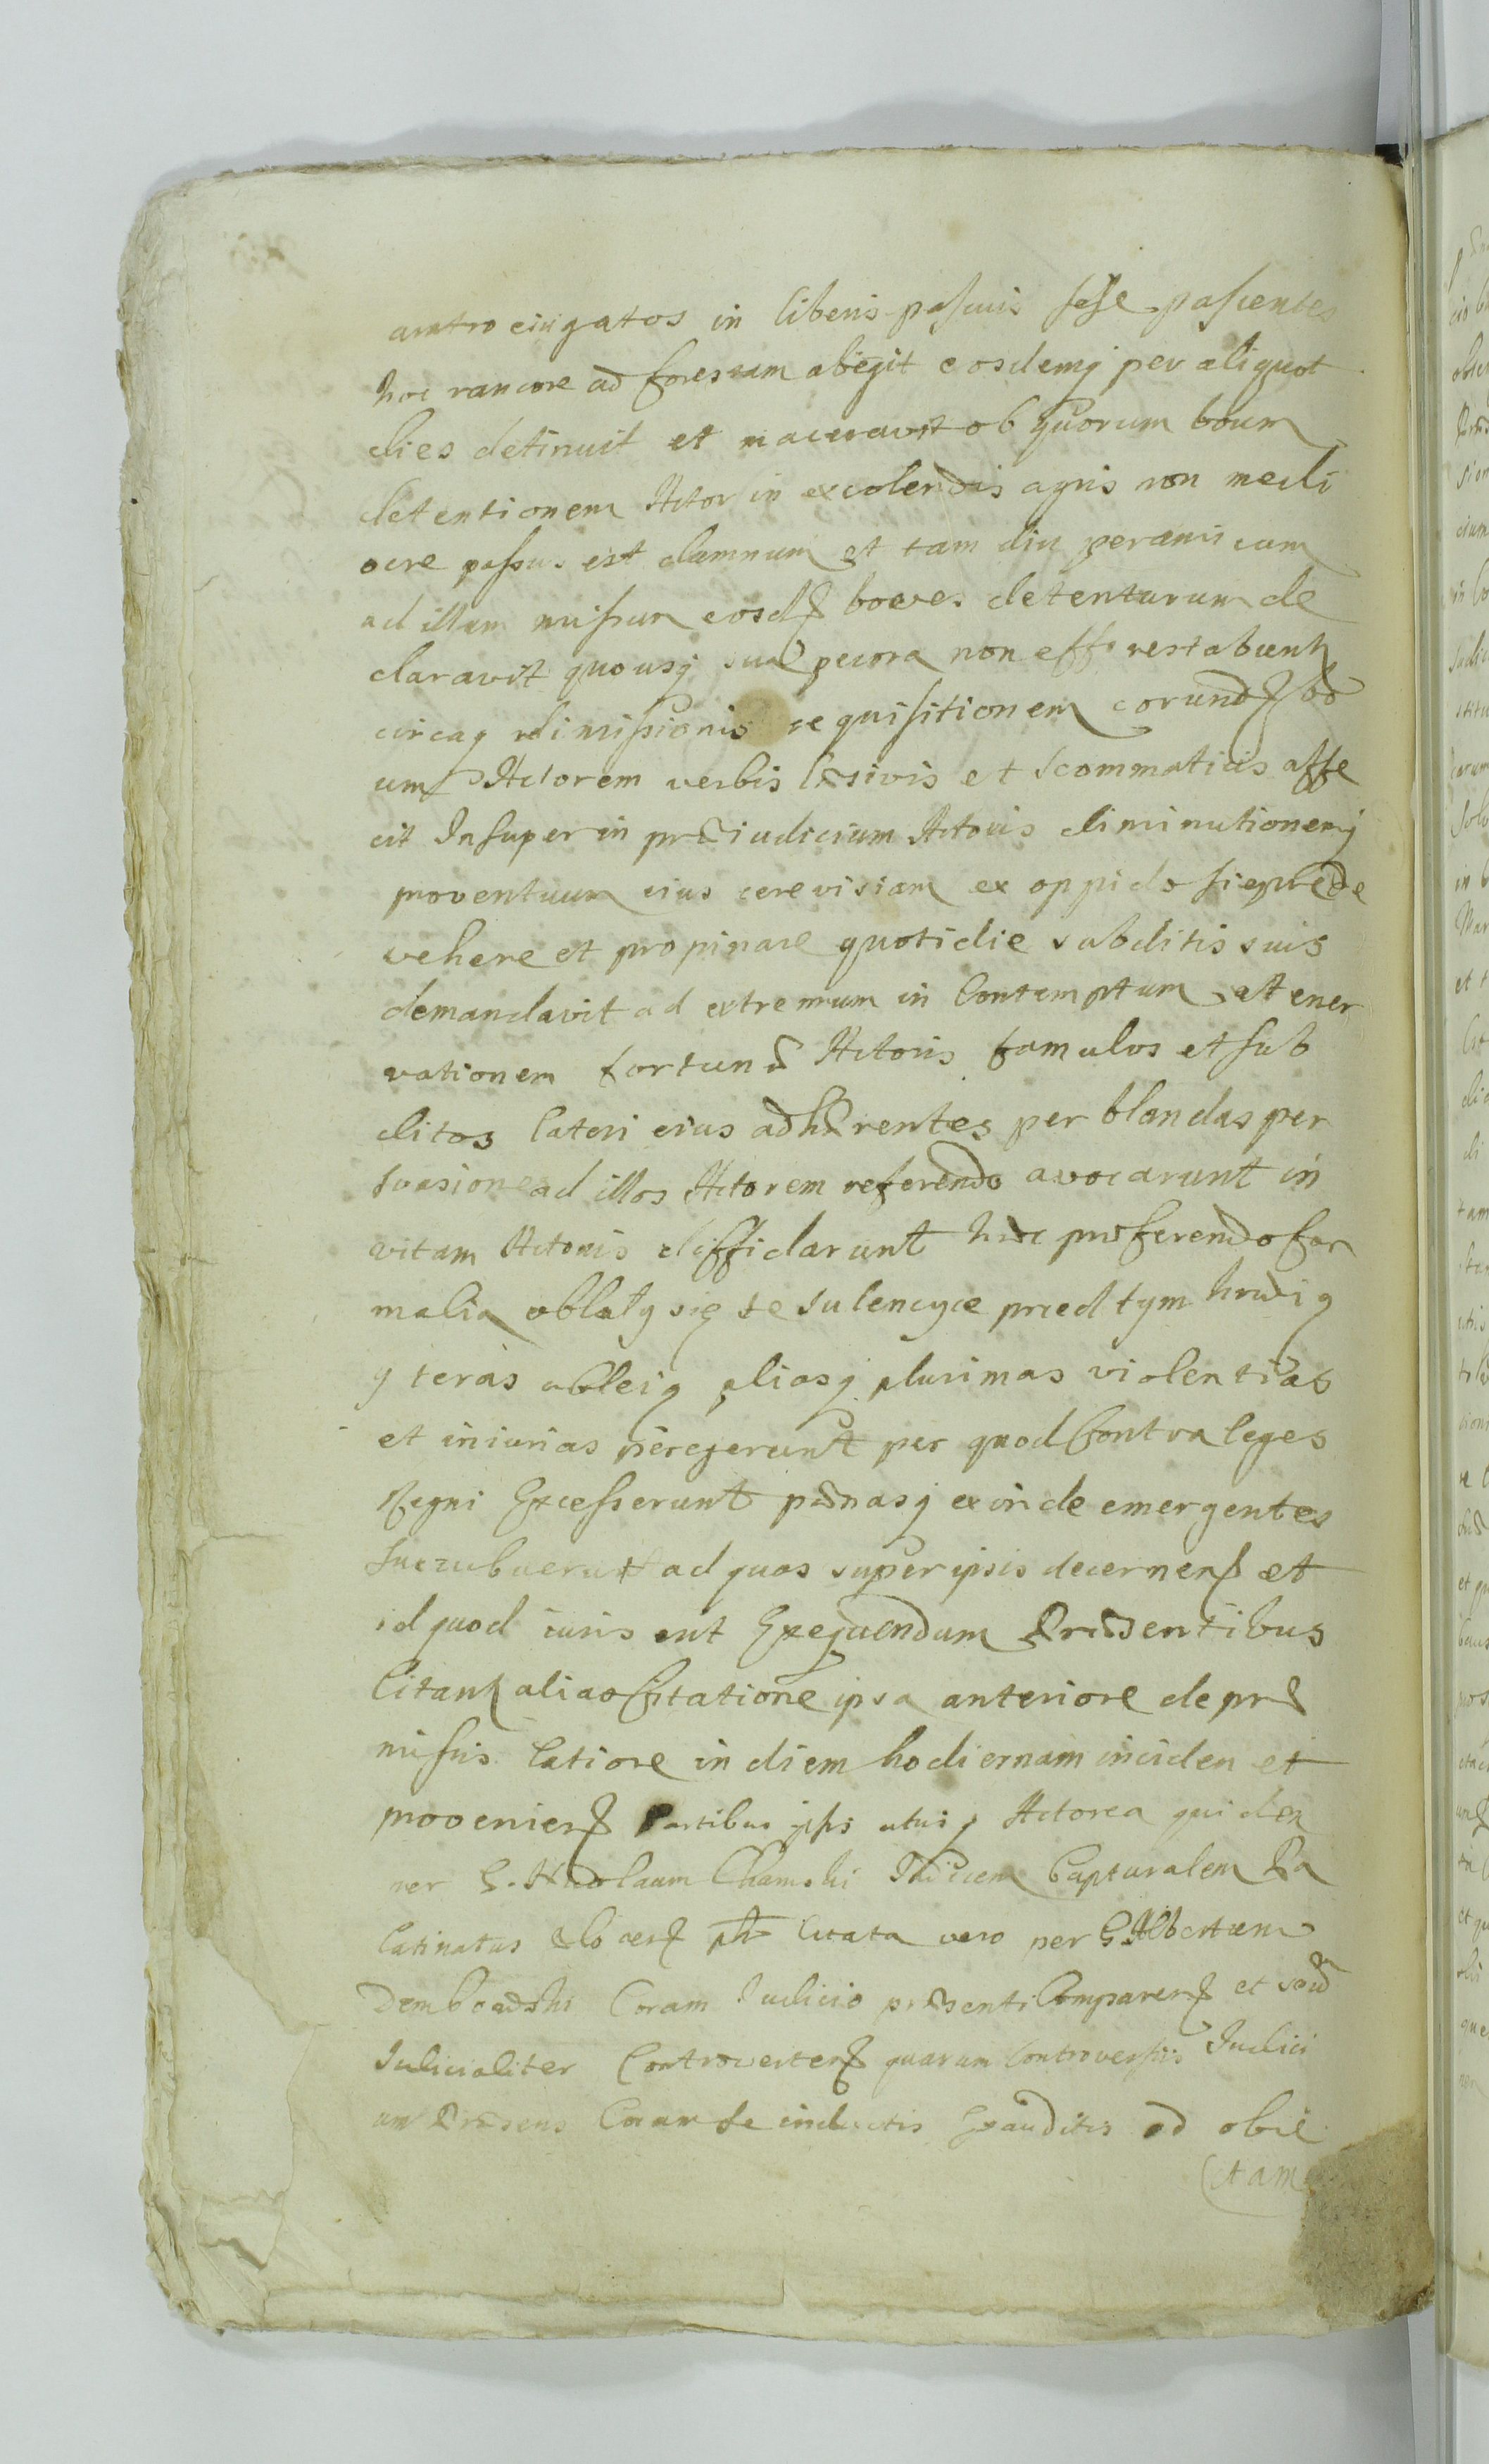 aratro eiugatos in liberis pascuis sese pascentes
hoc rancore ad forestam abegit eosdemq per aliquot
dies detinuit et maceravit ob quorum boum
detentionem Actor in excolendis agris non medi
ocre passus est damnum et tam diu per amicum
ad illam missum eosd boves detenturum de
claravit quousq sua pecora non restabunt
circaq dimissionis requisitionem eorund
um Actorem verbis læsivis et scommaticis affe
cit Insuper in præiudicium Actoris diminutionemq
proventuum eius cerevisiam ex oppido
vehere et propinare quotidie subditis suis
demandavit ad extremum in Contemptum et ener
vationem fortunæ Actoris famulos et sub
ditos lateri eius adhærentes per blandas per
suasiones ad illos Actorem referendo avocarunt in
vitam Actoris diffidarunt hæc proferendo for
malia oblały się te sulencyce pred tym krwią
y teras obleią aliasq plurimas violentias
et iniurias peregerunt per quod Contra leges
Regni Excesserunt pænasq exinde emergentes
Succubuerunt ad quas super ipsis decernen et
id quod iuris erit Exequendum Præsentibus
Citant alias Citatione ipsa anteriore de præ
missis latiore in diem hodiernam inciden et
provenien Partibus ipsis utrisq Actorea quidem
per G. Nicolaum Chamski Iudicem Capturalem Pa
latinatus Plocen Citata vero per G. Albertum
Dembowski Coram Iudicio præsenti Comparen et
Iudicialiter Controverten quarum Controversiis Iudici
um Præsens Coram se inductis Exauditis ad obie
ctam